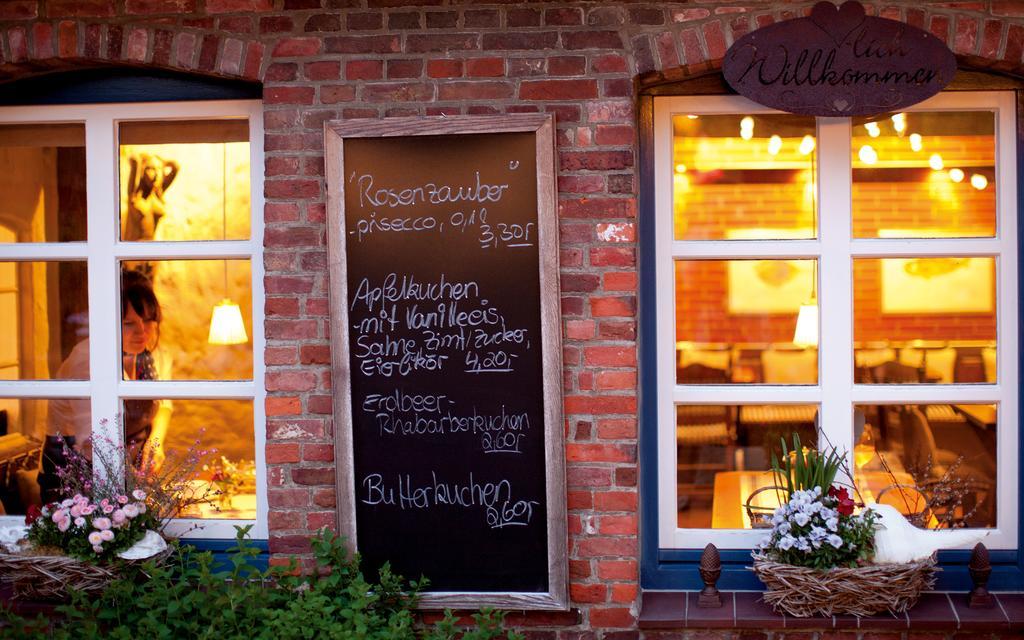 "Rosenzauber"
-pisecco, 0,1l
3,30,-
Apfelkuchen
-mit Vanilleeis,
Sahne, Zimt/Zucker,
Eierlikör 4,20,-
Erdbeer-
Rhabarberkuchen
2,60,-
Butterkuchen
2,60,-
lich
Willkommen